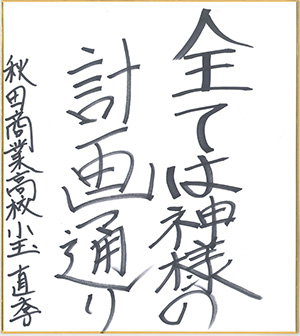 全ては神様の
計画通り
秋田商業高校 小玉 直季